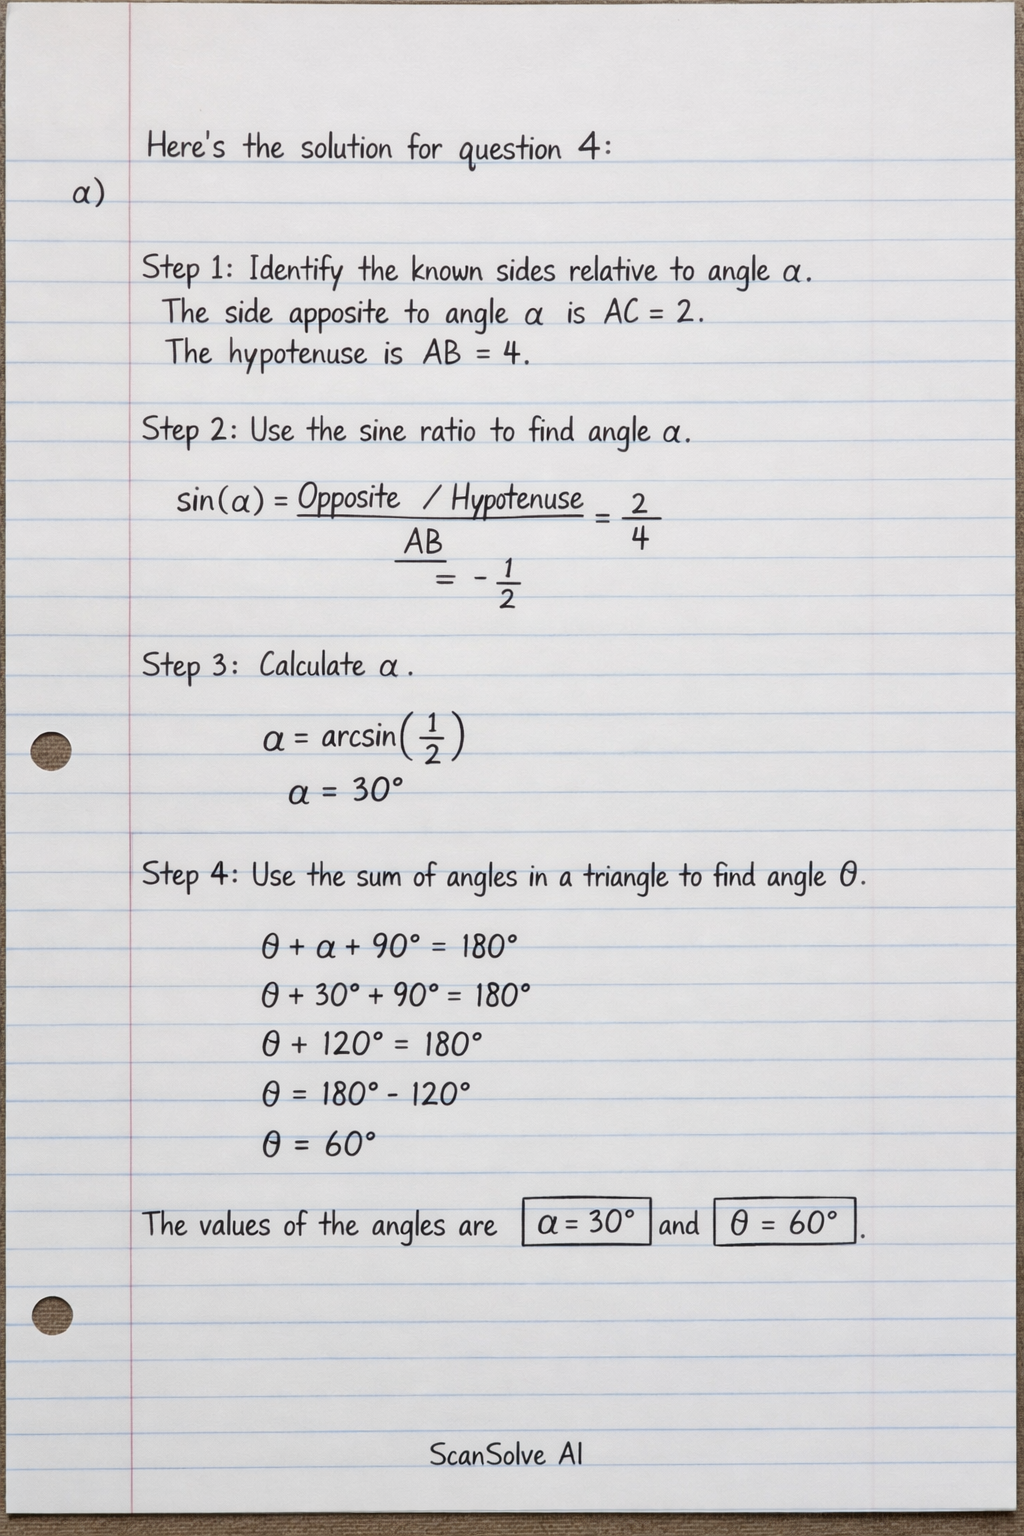 Here's the solution for question 4:
a)
Step 1: Identify the known sides relative to angle α.
The side apposite to angle α is AC = 2.
The hypotenuse is AB = 4.
Step 2: Use the sine ratio to find angle α.
sin(α) = Opposite / Hypotenuse = 2/4
AB
= - 1/2
Step 3: Calculate α.
α = arcsin(1/2)
α = 30°
Step 4: Use the sum of angles in a triangle to find angle θ.
θ + α + 90° = 180°
θ + 30° + 90° = 180°
θ + 120° = 180°
θ = 180° - 120°
θ = 60°
The values of the angles are α = 30° and θ = 60°.
ScanSolve AI